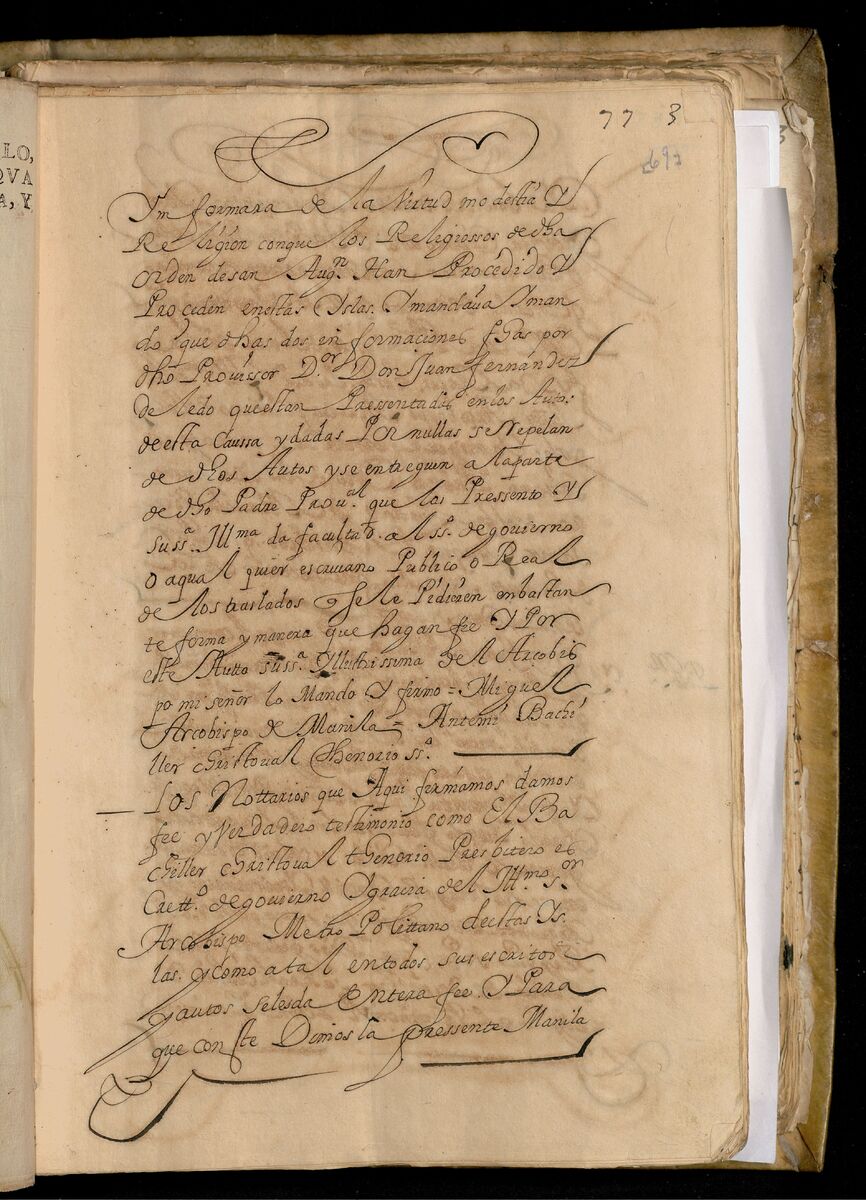 LO,
QVA
A, Y
77 3
Ynformara de la Virtud modestia Y
Religion conque los Religiossos de dha
orden de san Augn. Han Procedido Y
Proceden enestas Yslas. Ymandava Yman
do que dhas dos en formaciones fhas por
dho Provissor D.or Don Juan fernandez
de ledo questan Pressentadas enlos Autos
de esta Caussa y dadas Por nullas se Repelan
de dhos Autos y se entreguen a la parte
de dho Padre Prou.al que las Pressento Y
Su ssa. Illma da facultad. al sso. de govierno
o aqual quier escrivano Publico o Real
de los traslados q se le Pidieren enbastan
te forma y manera que hagan fee Y Por
este Autto su ssa. Yllustrissima Del Arcobis
po mi señor lo Mando Y firmo = Miguel
Arcobispo de Manila = Antemi Bachi
ller Christoval thenorio sso.
Los Nottarios que Aqui firmamos damos
fee y Verdadero testimonio como El Ba
chiller Christoval thenorio Presbitero es
Cretto. de govierno Ygracia del Illmo. s.or
Arcobispo Metro Polittano de estas Ys
las. y como atal entodos sus escritos
y autos selesda Entera fee Y Para
que conste Dimos la pressente Manila